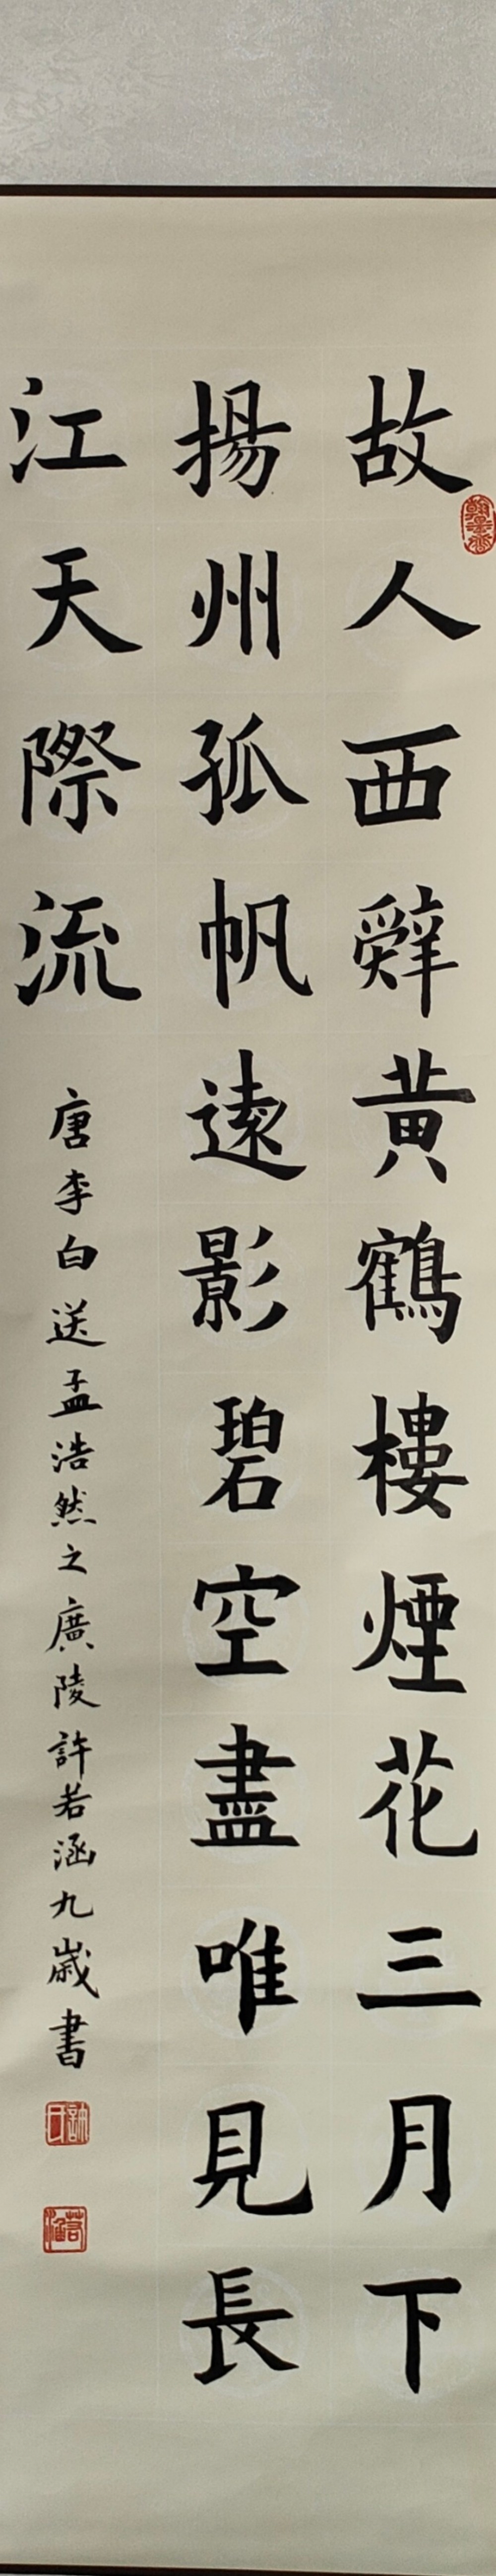 故人西辤黃鶴樓煙花三月下
揚州孤帆遠影碧空盡唯見長
江天際流
唐李白送孟浩然之廣陵許若涵九歲書
翰墨齋
許氏
若涵